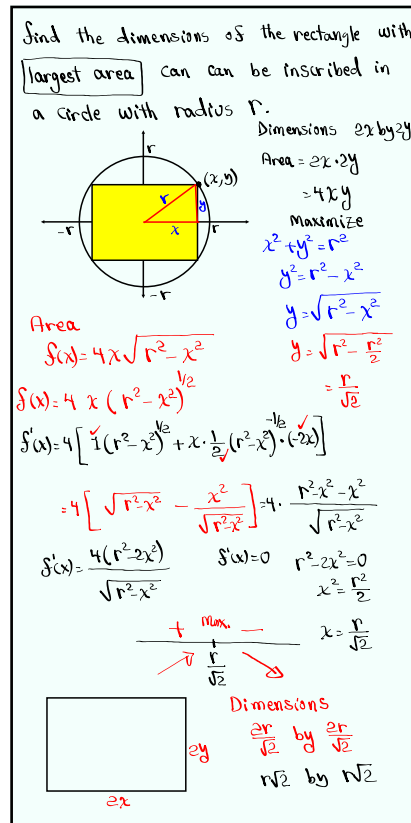 find the dimensions of the rectangle with
largest area can can be inscribed in
a circle with radius r.
Dimensions 2x by 2y
Area = 2x·2y
= 4xy
Maximize
x² + y² = r²
y² = r² - x²
y = √(r² - x²)
y = √(r² - r²/2)
= r/√2
r
(x,y)
r
y
x
-r
r
-r
Area
f(x) = 4x√(r² - x²)
f(x) = 4 x (r² - x²)^1/2
f'(x) = 4[1(r² - x²)^1/2 + x·1/2(r² - x²)^-1/2·(-2x)]
= 4[√(r² - x²) - x²/√(r² - x²)] = 4· (r² - x² - x²)/√(r² - x²)
f'(x) = 4(r² - 2x²)/√(r² - x²)
f'(x) = 0
r² - 2x² = 0
x² = r²/2
x = r/√2
+ Max. -
r/√2
Dimensions
2r/√2 by 2r/√2
r√2 by r√2
2y
2x